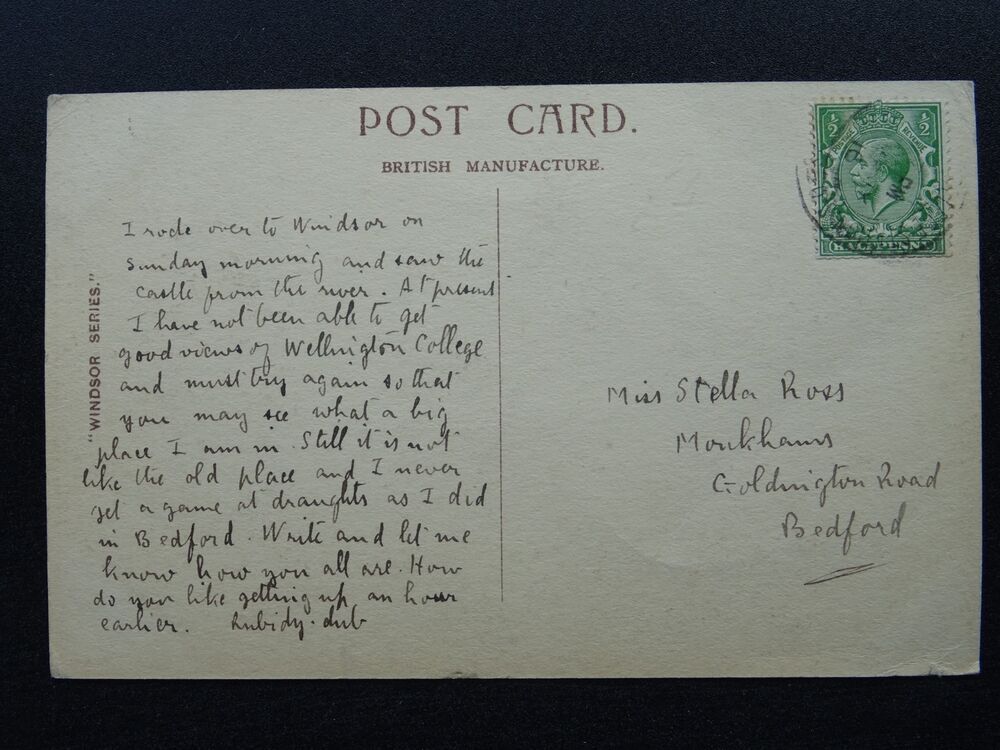 POST CARD.
BRITISH MANUFACTURE.
"WINDSOR SERIES."
I rode over to Windsor on
Sunday morning and saw the
castle from the river. At present
I have not been able to get
good views of Wellington College
and must try again so that
you may see what a big
place I am in. Still it is not
like the old place and I never
get a game at draughts as I did
in Bedford. Write and let me
know how you all are. How
do you like getting up an hour
earlier. Rubidy-dub
½ ½
POSTAGE REVENUE
HALFPENNY
PM
Miss Stella Ross
Monkhams
Goldington Road
Bedford